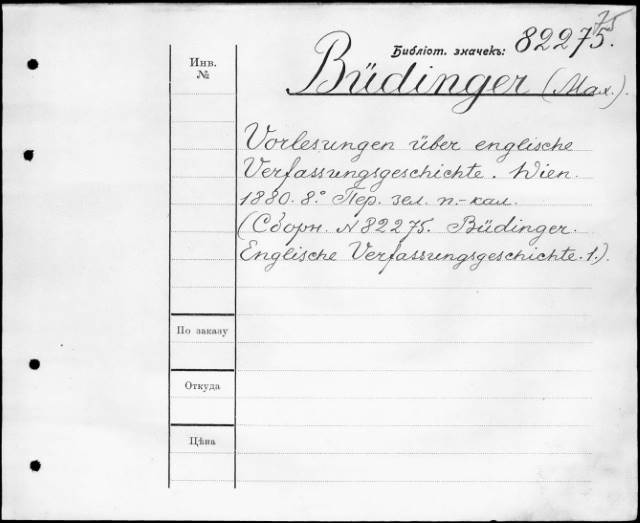 75
Библіот. значекъ: 82275.
Büdinger (Max.).
Инв.
№
Vorlesungen über englische
Verfassungsgeschichte. Wien.
1880. 8.° Пер. зел. п.-кал.
(Сборн. N 82275. Büdinger.
Englische Verfassungsgeschichte. 1.).
По заказу
Откуда
Цѣна